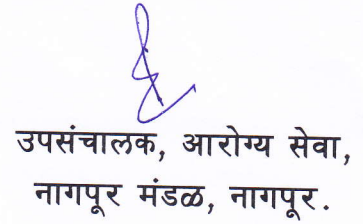 उपसंचालक, आरोग्य सेवा,
नागपूर मंडळ, नागपूर.